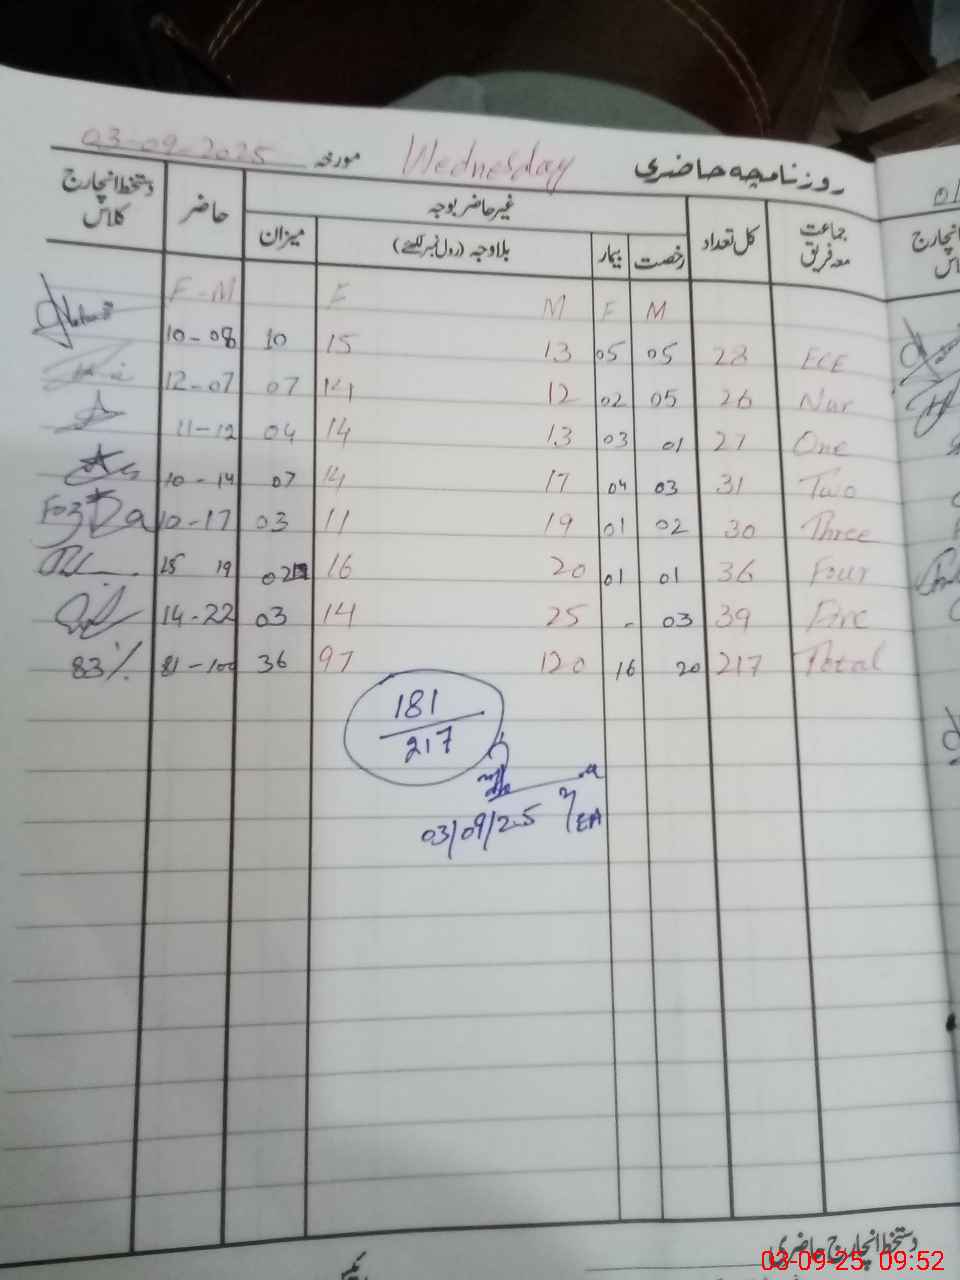 روزنامچہ حاضری Wednesday مورخہ 03-09-2025
جماعت معہ فریق کل تعداد غیر حاضر بوجہ حاضر دستخط انچارج کلاس
رخصت بیمار بلاوجہ (رول نمبر لکھئے) میزان
M F M F F-M
ECE 28 05 05 13 15 10 10-08
Nur 26 05 02 12 14 07 12-07
One 27 01 03 13 14 04 11-12
Two 31 03 04 17 14 07 10-14
Three 30 02 01 19 11 03 10-17
Four 36 01 01 20 16 02 15 19
Five 39 03 - 25 14 03 14-22
Total 217 20 16 120 97 36 81-100 83%
181
217
03/09/25
دستخط انچارج حاضری
03-09-25, 09:52